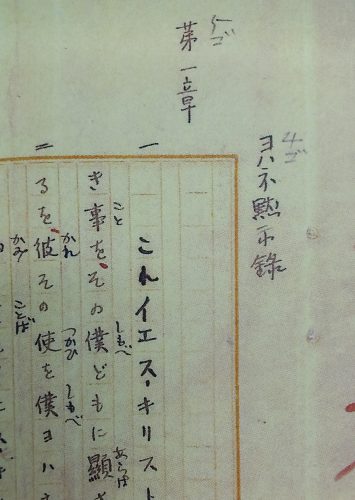 4ゴ
ヨハネ默示錄
5ゴ
第一章
一
これイエス・キリスト
こと しもべ あらは
き事を、その僕どもに顯
二
かれ つかひ しもべ
るを、彼その使を僕ヨハ
かみ ことば